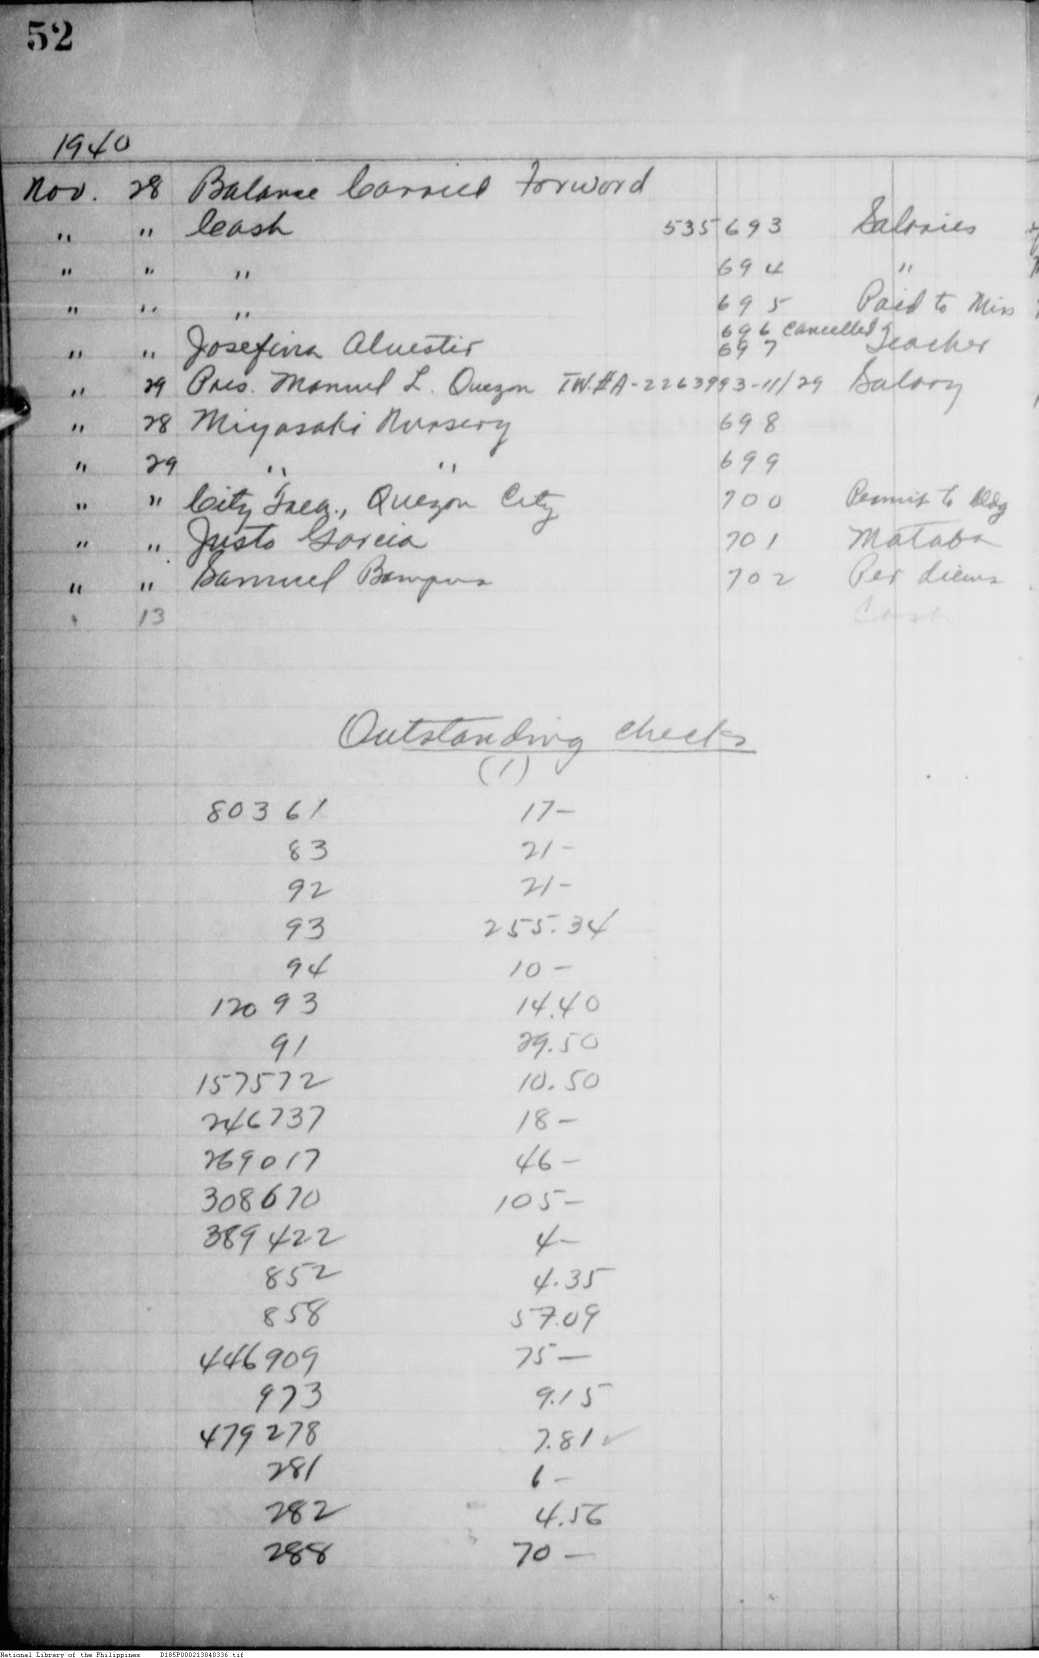 52
1940
Nov. 28 Balance Carried Forword
" " Cash 535693 Salaries
" " " 694 "
" " " 695 Paid to Miss
696 Cancelled
" " Josefina 697 Teacher
" 29 Pres. Manuel L. Quezon T.W.#A-2263993-11/29 Salary
" 28 Miyasaki Nursery 698
" 29 " " 699
" " City Treas., Quezon City 700 Permit to Bldg
" " Justo Garcia 701
" " Samuel 702 Per diems
" 13 Cash
Outstanding checks
(1)
80361 17-
83 21-
92 21-
93 255.34
94 10-
12093 14.40
91 29.50
157572 10.50
246737 18-
269017 46-
308670 105-
389422 4-
852 4.35
858 57.09
446909 75-
973 9.15
479278 7.81 ✓
281 6-
282 4.56
288 70-
National Library of the Philippines D185P000213840336.tif